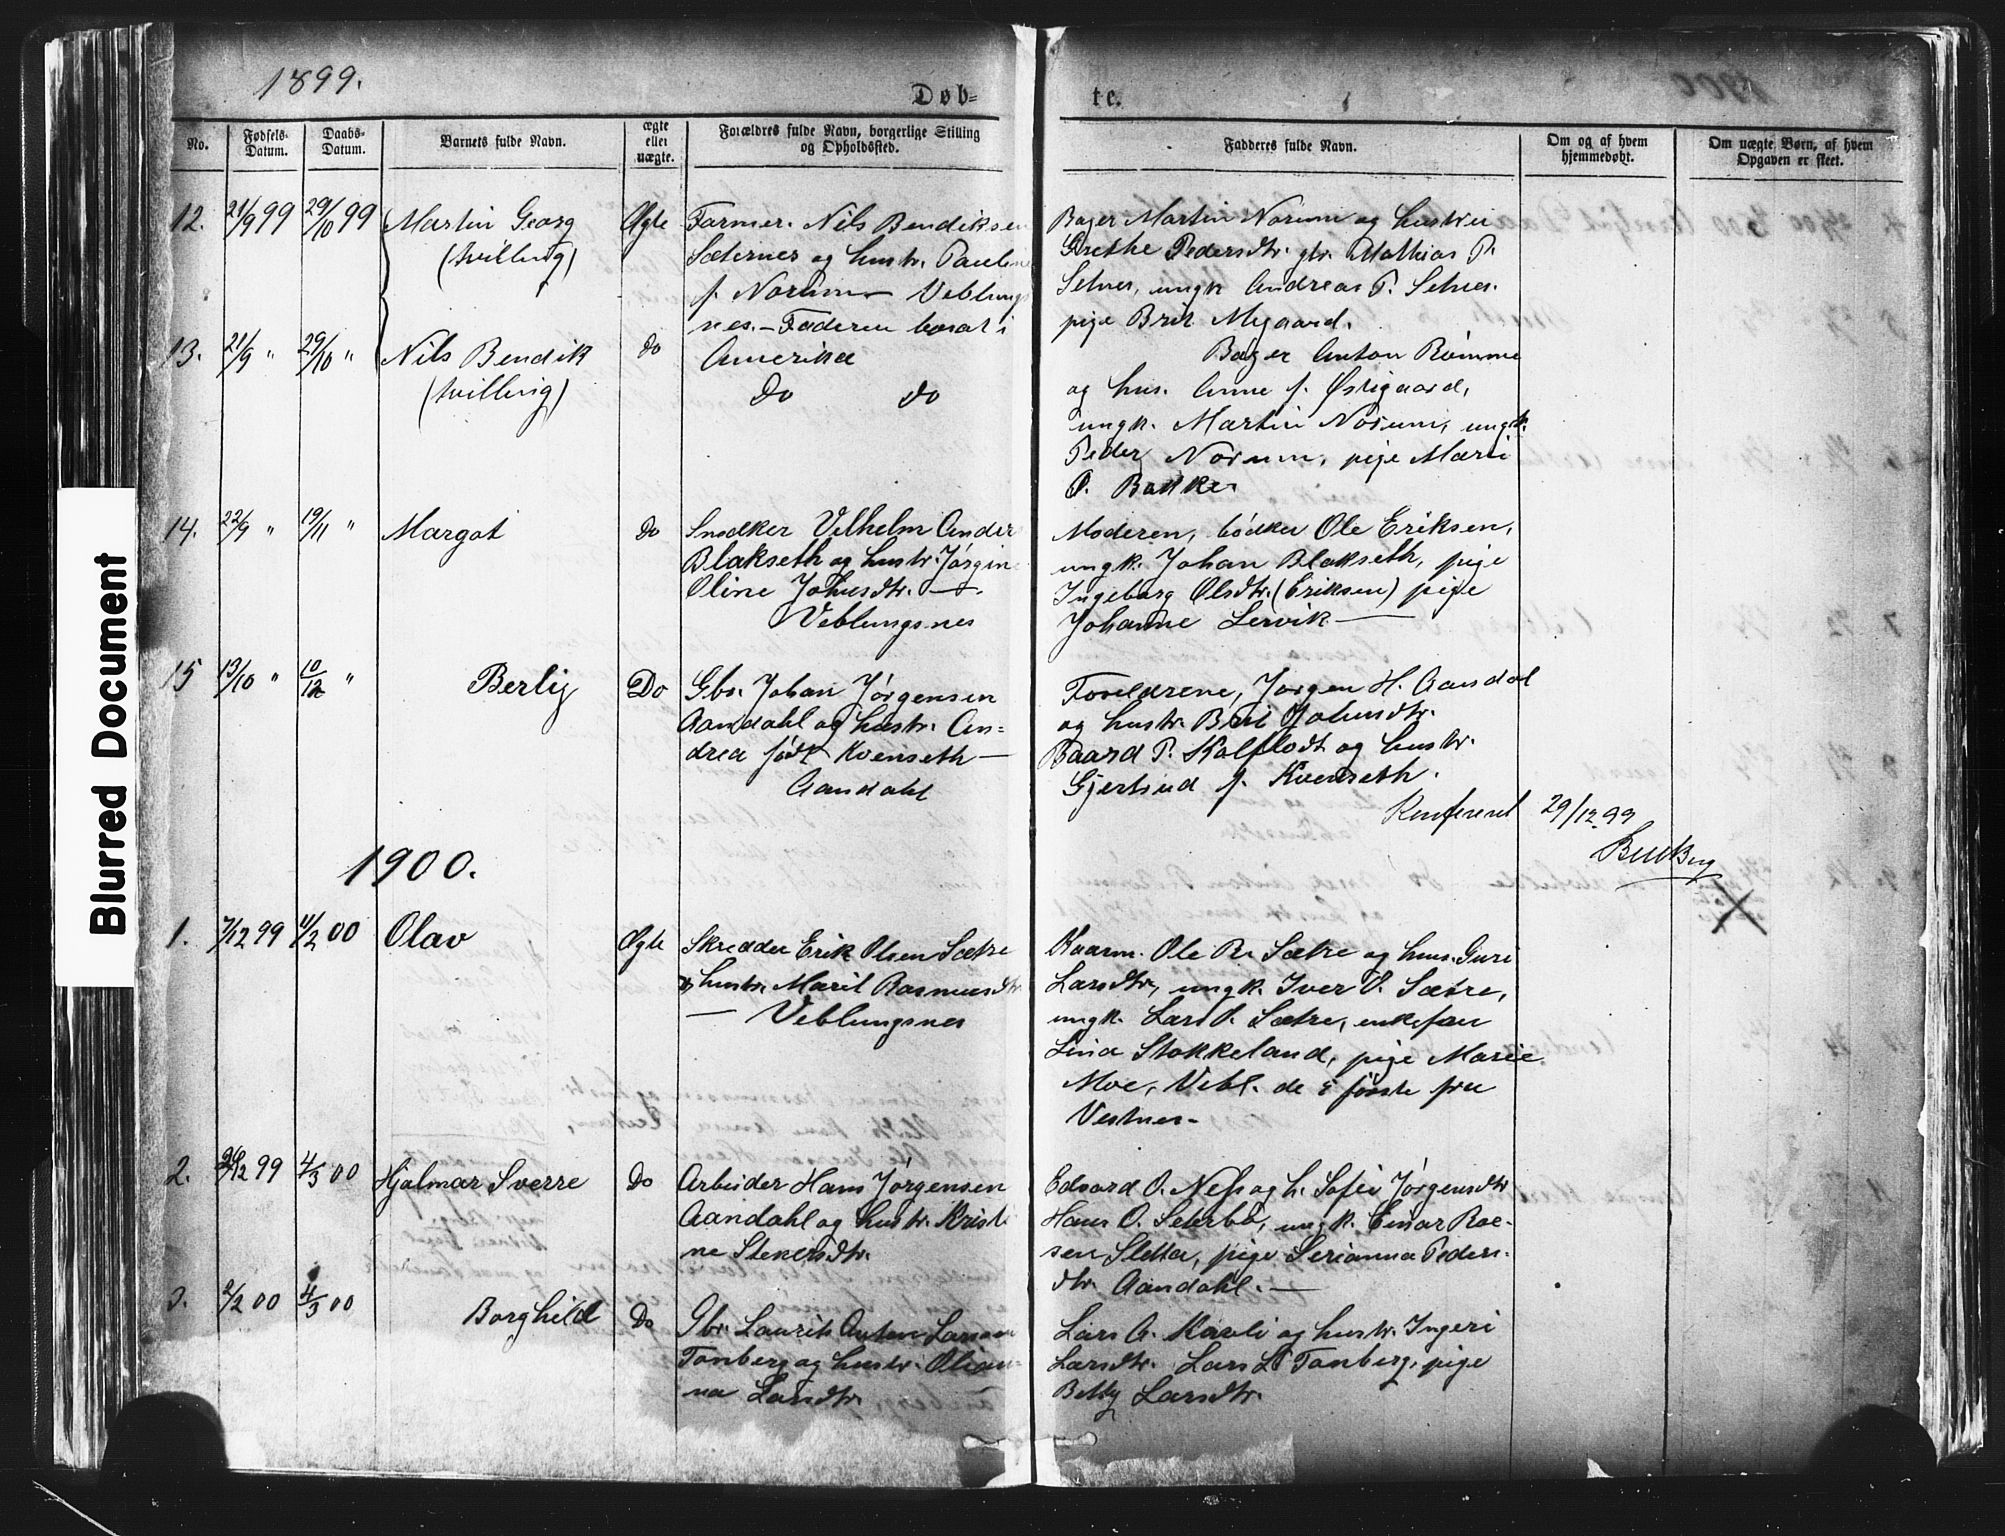 1899.
Døb-
te.
No.
Fødsels-
Datum.
Daabs-
Datum.
Barnets fulde Navn.
ægte
eller
uægte.
Forældres fulde Navn, borgerlige Stilling
og Opholdssted.
Fadderes fulde Navn.
Om og af hvem
hjemmedøbt.
Om uægte Børn, af hvem
Opgaven er skeet.
12. 21/9 99 29/10 99 Martin Georg
(tvilling)
Ægte
Farmer Nils Bendiksen
Sæternes og hustr. Pauline
f. Norum — Veblungs
nes. — Faderen bosat i
Amerika
Bager Martin Norum og hustru
Grethe Pedersdtr. gbr. Mathias P.
Setnes, ungk. Andreas P. Setnes.
pige Brit Mygaard.
13. 21/9 " 29/10 " Nils Bendik
(tvilling)
do
Do do
Bager Anton Rømme
og hus. Anne f. Østigaard,
ungk. Martin Norum, ungk.
Peder Norum, pige Marie
O. Bakke
14. 22/9 " 19/11 " Margot
Do
Snedker Vilhelm Ander
Blakseth og hustr. Jørgine
Oline Johnsdtr. —
Veblungsnes
Moderen, bødker Ole Eriksen,
ungk. Johan Blakseth, pige
Ingeborg Olsdtr. (Eriksen) pige
Johanne Lervik —
15 13/10 " 10/12 " Berlig
Do
Gbr. Johan Jørgensen
Aandahl og hustr. An=
drea født Kvenseth —
Aandahl
Forældrene, Jørgen H. Aandal
og hustr. Brit Johnsdtr.
Baard P. Kalflodt og hustr.
Gjertrud f. Kvenseth.
Konfereret 29/12 99
1900.
1. 7/12 99 11/2 00 Olav
Ægte
Skrædder Erik Olsen Sætre
og hustr. Marit Rasmusdtr.
— Veblungsnes
Kaarm. Ole R. Sætre og hus. Guri
Larsdtr, ungk. Iver O. Sætre,
ungk. Lars O. Sætre, enkefru
Lina Stokkeland, pige Marie
Moe, Vebl. de 5 første fra
Vestnes -
2. 12 99 4/3 00 Hjalmar Sverre
Do
Arbeider Hans Jørgensen
Aandahl og hustr. Kristi
ne Stenersdtr.
Edvard O. Næss og h. Sofie Jørgensdtr
Hans O. Seterbø, ungk. Einar Roe-
sen Sletta, pige Serianna Peders-
dtr. Aandahl. —
3. 2/2 00 4/3 00 Borghild
Do
Gbr. Laurits Anton Larsen
Tonberg og hustr. Olian-
na Larsdtr.
Lars A. Kavli og hustr. Ingeri
Larsdtr. Lars L. Tonberg, pige
Betty Larsdtr.
Blurred Document